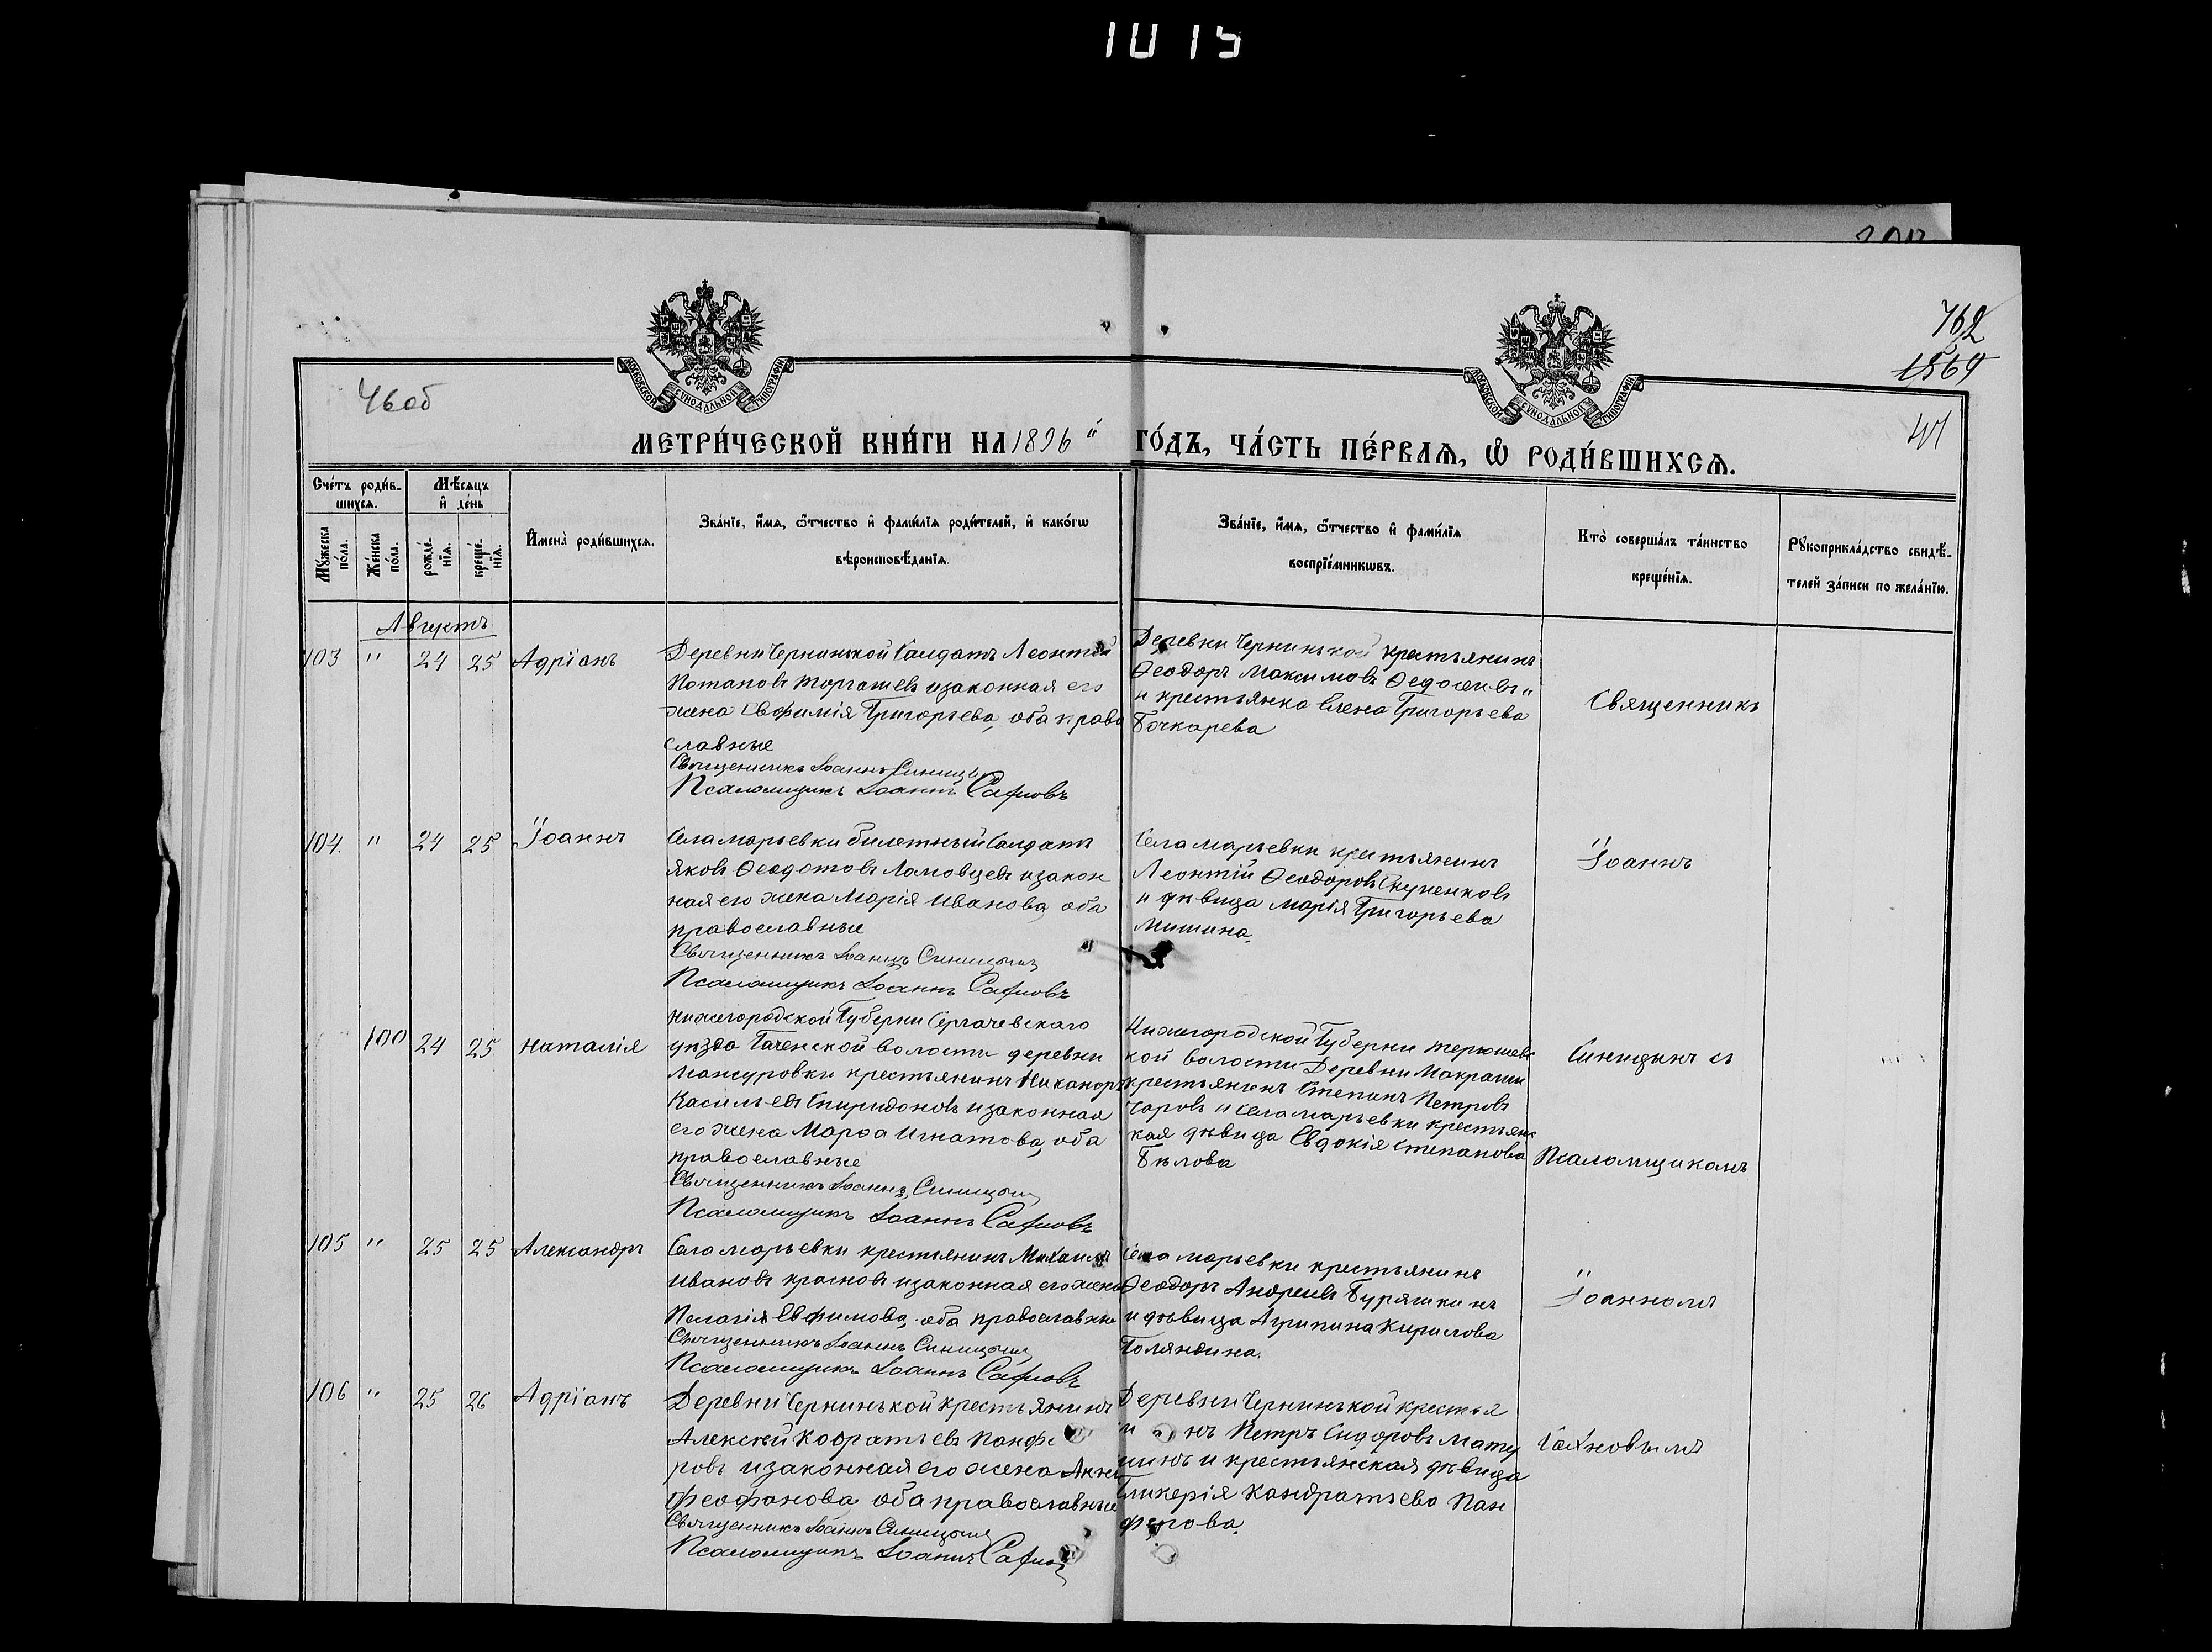 1015
762
1569
41
46об
МОСКОВСКОЙ СѴНОДАЛЬНОЙ ТИПОГРАФІИ
МОСКОВСКОЙ СѴНОДАЛЬНОЙ ТИПОГРАФІИ
МЕТРИ́ЧЕСКОЙ КНИ́ГИ НА 1896 й ГО́ДЪ, ЧА́СТЬ ПЕ́РВАЯ, Ѡ РОДИ́ВШИХСЯ.
Сче́тъ роди́в-
шихся.
Мѣ́сяцъ
и҆ де́нь
Мꙋ́жеска
по́ла.
Же́нска
по́ла.
рожде́-
нїѧ.
креще́-
нїѧ.
И҆мена̀ роди́вшихсѧ.
Зва́нїе, и҆́мѧ, ѻ҆́тчество и҆ фами́лїѧ роди́телей, и҆ како́гѡ
вѣроисповѣ́данїѧ.
Зва́нїе, и҆́мѧ, ѻ҆́тчество и҆ фами́лїѧ
воспрїе́мникѡвъ.
Кто̀ соверша́лъ та́инство
креще́нїѧ.
Рꙋкоприкла́дство свидѣ́-
телей за́писи по жела́нїю.
Августъ
103 " 24 25 Адріанъ
Деревни Чернинькой Салдатъ Леонтій
Потаповъ Торгашев изаконная его
жена Евфимія Григорьева, оба право
славные
Священникъ Іоаннъ Синицы
Псаломщикъ Іоаннъ Сафновъ
Деревни Чернинькой крестьянинъ
Ѳеодоръ Максимовъ Ѳедосеевъ
и крестьянка Елена Григорьева
Бочкарева
Священникъ
104. " 24 25 Іоаннъ
Села марьевки билетный Салдатъ
Яковъ Ѳеодотовъ Ломовцевъ изакон
ная его жена Марія Иванова, оба
православные
Священникъ Іоаннъ Синицынъ
Псаломщикъ Іоаннъ Сафновъ
Села марьевки крестьянинъ
Леонтій Ѳеодоровъ
и дѣвица Марія Григорьева
Мишина.
Іоаннъ
100 24 25 Наталія
Нижегородской Губерни Сергачевскаго
уѣзда волости деревни
Мансуровки крестьянинъ Никаноръ
Васильевъ Спиридоновъ изаконная
его жена Марѳа Игнатова, оба
православные
Священникъ Іоаннъ Синицынъ
Псаломщикъ Іоаннъ Сафновъ
Нижегородской Губерни Терюшевс
кой волости Деревни
крестьянинъ Степанъ Петровъ
и села марьевки крестьянс
кая дѣвица Евдокія Степанова
Бѣлова
Синицынъ съ
Псаломщикомъ
105 " 25 25 Александръ
Села марьевки крестьянинъ Михаилъ
Ивановъ красновъ изаконная его жена
Пелагія Евфимова, оба православны
Священникъ Іоаннъ Синицынъ
Псаломщикъ Іоаннъ Сафновъ
Села марьевки крестьянинъ
Ѳеодоръ Андреевъ Буряшкинъ
и дѣвица Агрипина Кирилова
Голяндина.
Іоанномъ
106 " 25 26 Адріанъ
Деревни Чернинькой Крестьянинъ
Алексѣй Кодратьевъ Панфе
ровъ изаконная его жена Анна
Феофанова, оба православные
Священникъ Іоаннъ Синицынъ
Псаломщикъ Іоаннъ Сафновъ
Деревни Чернинькой Крестья
нинъ Петръ Сидоровъ Мату
шинъ и крестьянская дѣвица
Гликерія Кандратьева Пан
ферова.
Сафновымъ